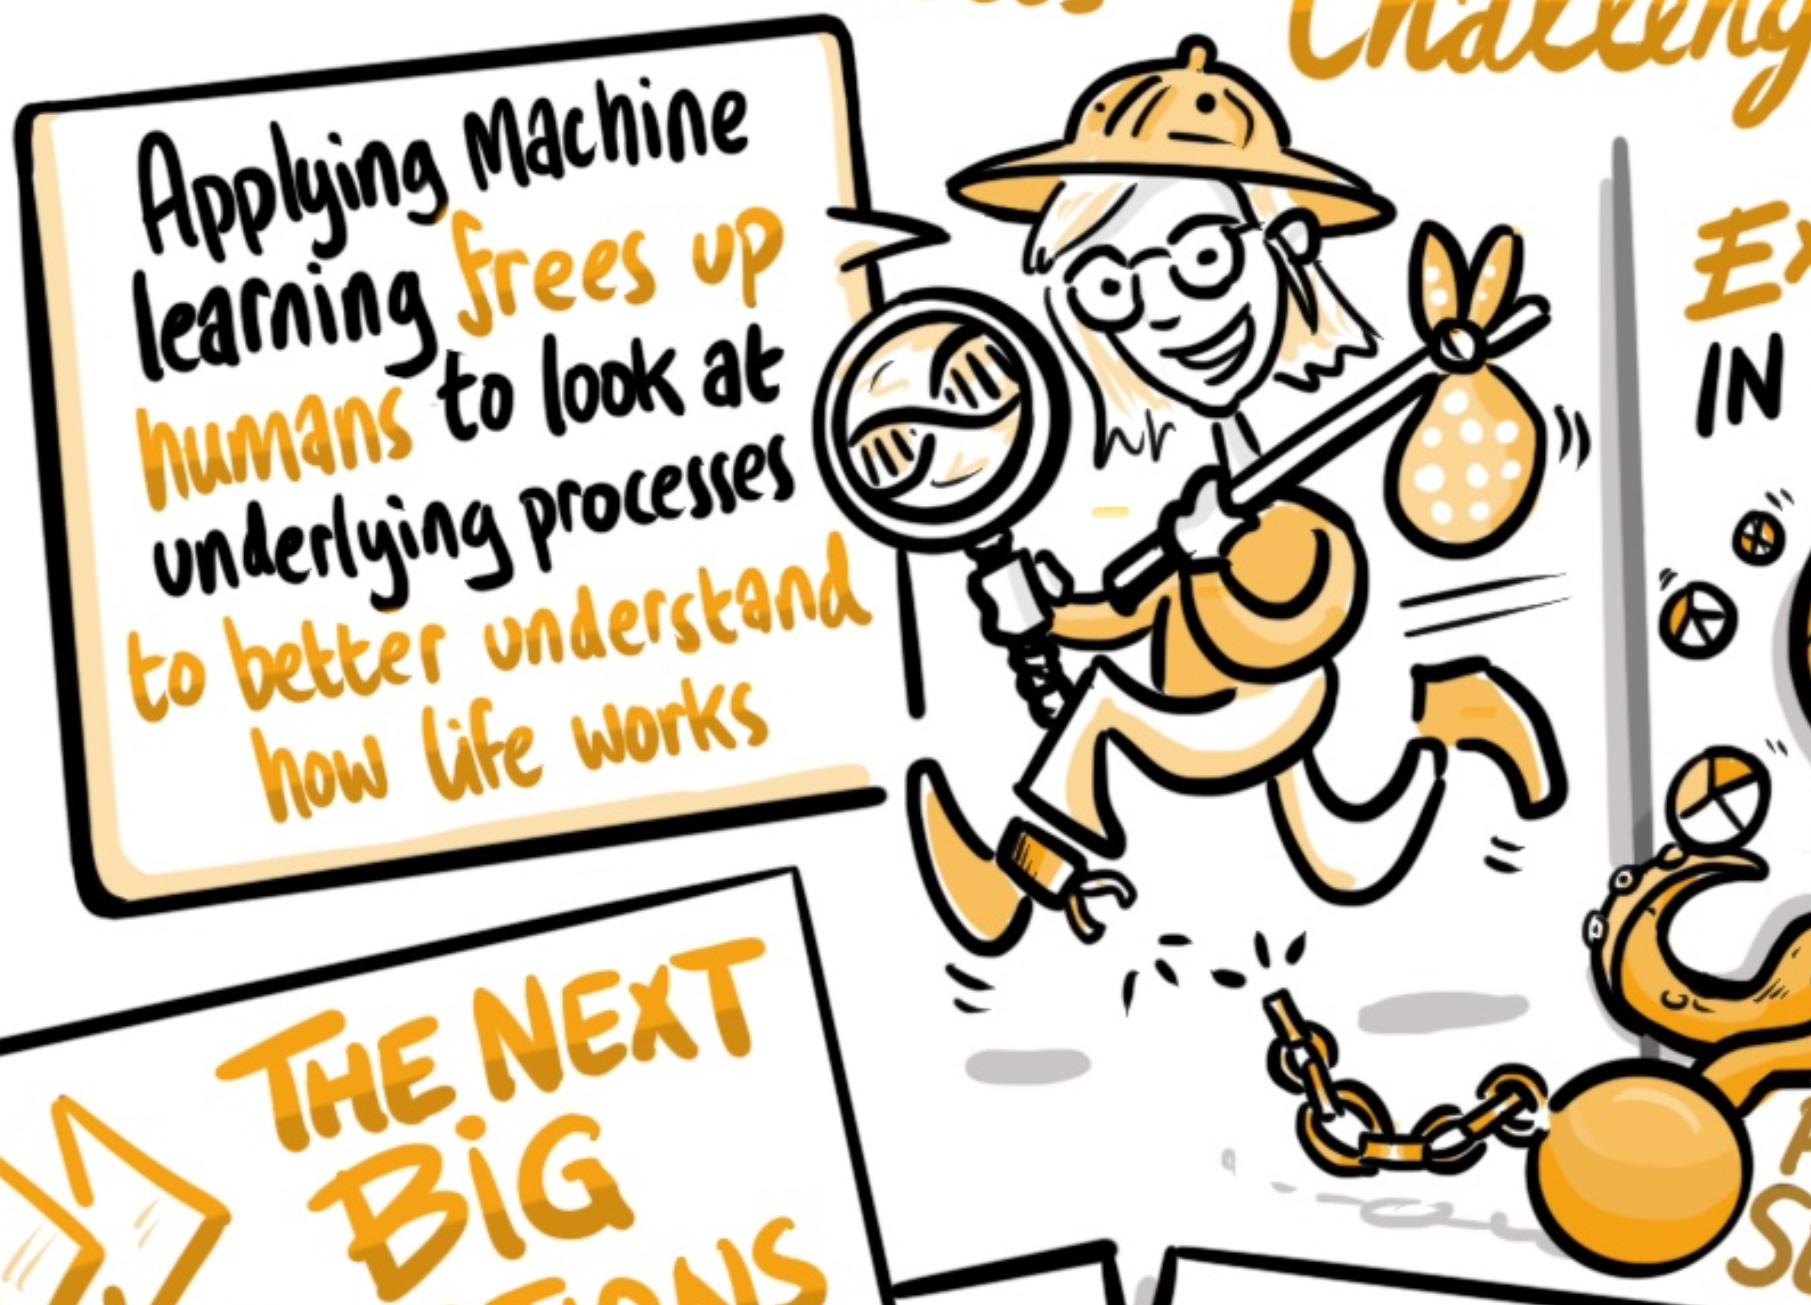 Applying Machine
learning frees up
humans to look at
underlying processes
to better understand
how life works
THE NEXT
BiG
IN